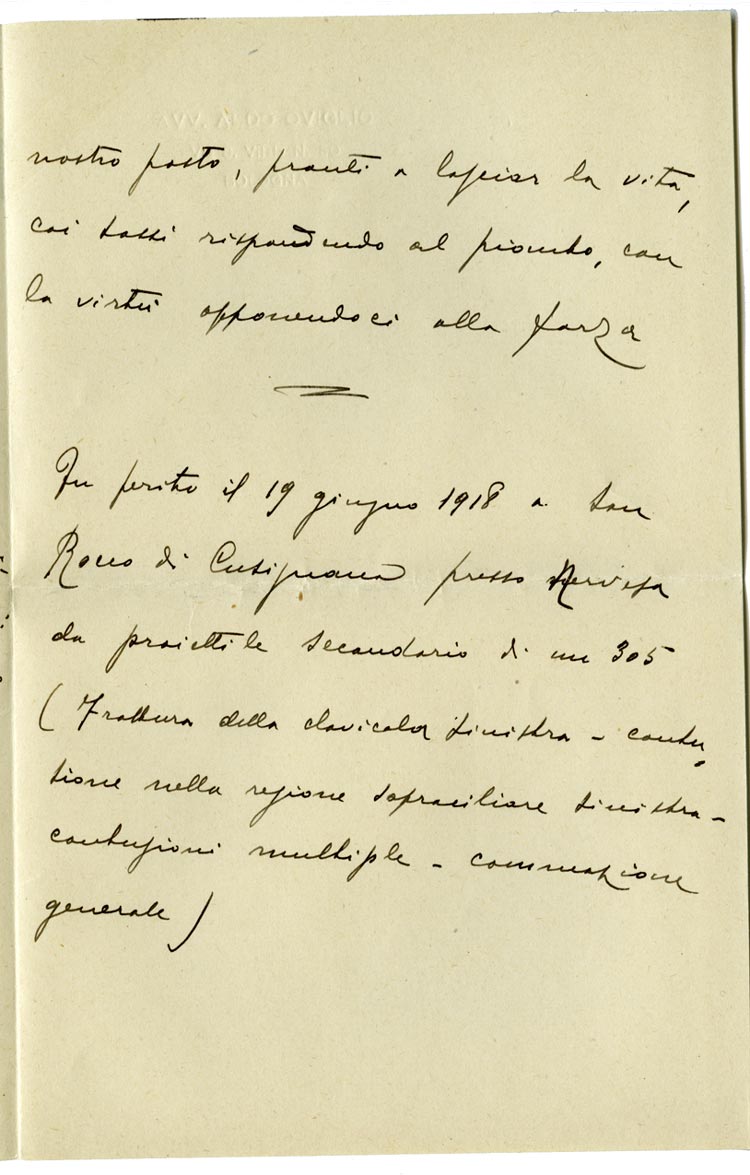 nostro posto, pronti a lasciar la vita,
coi sassi rispondendo al piombo, con
la virtù opponendoci alla forza
Fu ferito il 19 giugno 1918 a San
Rocco di Cusignana presso Nervesa
da proiettile secondario di un 305
(Frattura della clavicola sinistra - contu,
sione nella regione sopraciliare sinistra -
contusioni multiple - commozione
generale)